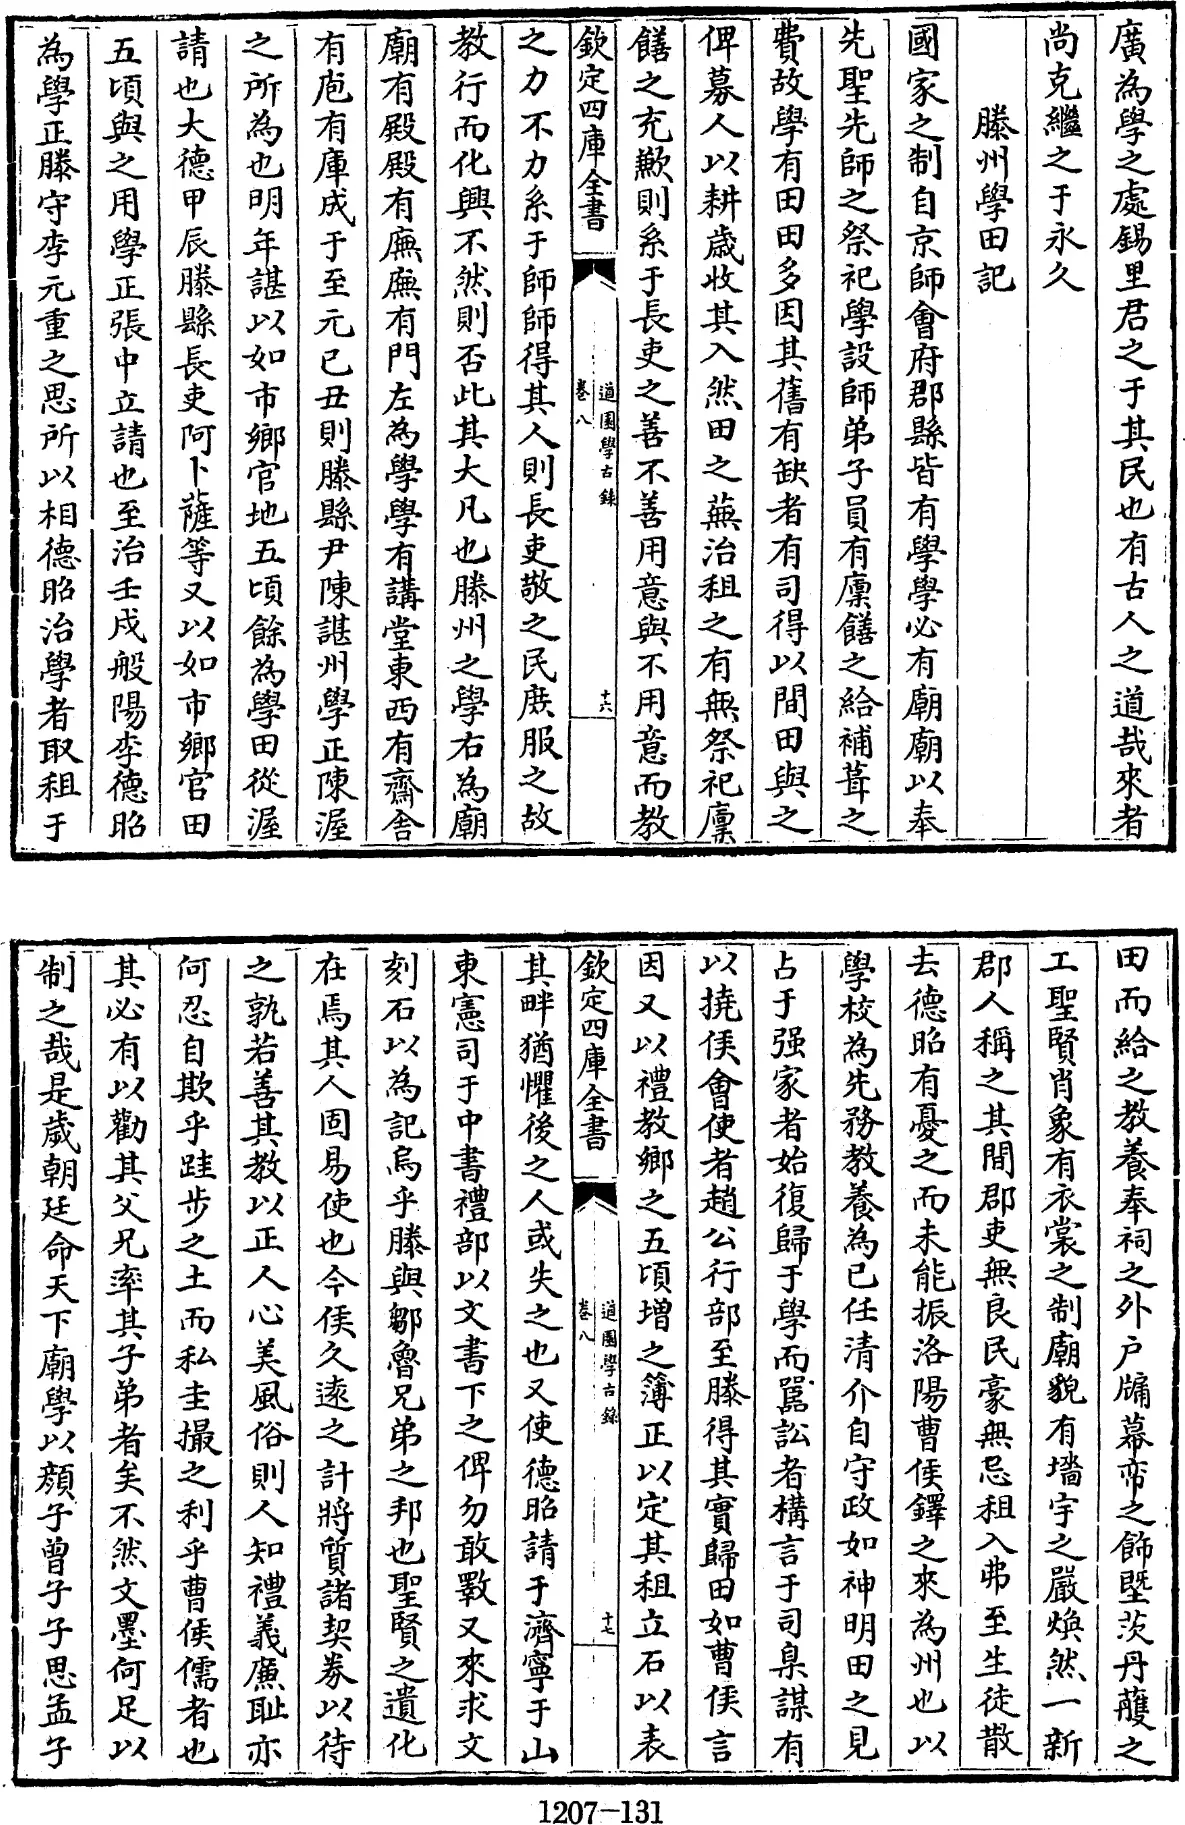 廣為學之處錫里君之于其民也有古人之道哉來者
尚克繼之于永久
滕州學田記
國家之制自京師會府郡縣皆有學學必有廟廟以奉
先聖先師之祭祀學設師弟子員有廩饍之給補葺之
費故學有田田多因其舊有缺者有司得以閒田與之
俾募人以耕歳收其入然田之蕪治租之有無祭祀廩
饍之充歉則系于長吏之善不善用意與不用意而教
欽定四庫全書
道園學古錄
卷八
十六
之力不力系于師師得其人則長吏敬之民庶服之故
教行而化興不然則否此其大凡也滕州之學右為廟
廟有殿殿有廡廡有門左為學學有講堂東西有齋舎
有庖有庫成于至元己丑則滕縣尹陳諶州學正陳渥
之所為也明年諶以如市鄉官地五頃餘為學田從渥
請也大德甲辰滕縣長吏阿卜薩等又以如市鄉官田
五頃與之用學正張中立請也至治壬戌般陽李德昭
為學正滕守李元重之思所以相德昭治學者取租于
田而給之教養奉祠之外戸牖幕帟之飾塈茨丹雘之
工聖賢肖象有衣裳之制廟貌有墻宇之嚴煥然一新
郡人稱之其間郡吏無良民豪無忌租入弗至生徒散
去德昭有憂之而未能振洛陽曹侯鐸之來為州也以
學校為先務教養為已任清介自守政如神明田之見
占于强家者始復歸于學而嚚訟者構言于司臬謀有
以撓侯會使者趙公行部至滕得其實歸田如曹侯言
因又以禮教鄉之五頃增之簿正以定其租立石以表
欽定四庫全書
道園學古錄
卷八
十七
其畔猶懼後之人或失之也又使德昭請于濟寧于山
東憲司于中書禮部以文書下之俾勿敢斁又來求文
刻石以為記烏乎滕與鄒魯兄弟之邦也聖賢之遺化
在焉其人固易使也今侯久逺之計將質諸契劵以待
之孰若善其教以正人心美風俗則人知禮義廉耻亦
何忍自欺乎跬步之土而私圭撮之利乎曹侯儒者也
其必有以勸其父兄率其子弟者矣不然文墨何足以
制之哉是歳朝廷命天下廟學以顔子曾子子思孟子
1207-131